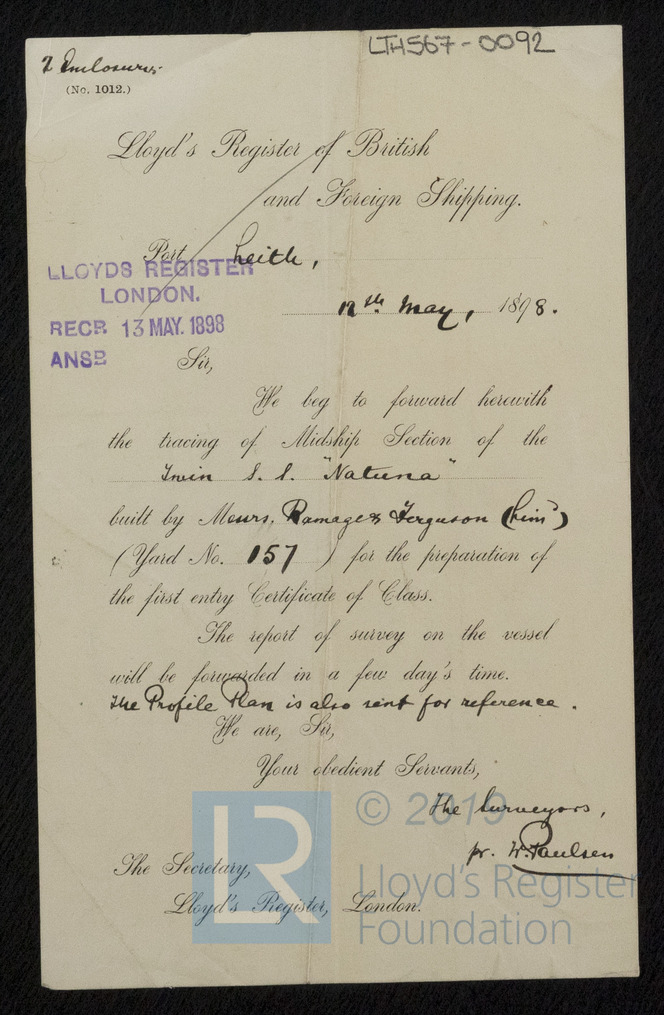 LTH567-0092
2 Enclosures
(No. 1012.)
Lloyd's Register of British
and Foreign Shipping.
Port Leith,
LLOYDS REGISTER
LONDON.
RECR 13 MAY. 1898
ANSR
12th May, 1898.
Sir,
We beg to forward herewith
the tracing of Midship Section of the
Twin S. S. "Natuna"
built by Messrs. Ramage & Ferguson (Lim^d)
(Yard No. 157 ) for the preparation of
the first entry Certificate of Class.
The report of survey on the vessel
will be forwarded in a few day's time.
The Profile Plan is also sent for reference.
We are, Sir,
Your obedient Servants,
The Surveyors,
pr. W. Paulsen
The Secretary,
Lloyd's Register, London.
LR
© 2019
Lloyd's Register
Foundation